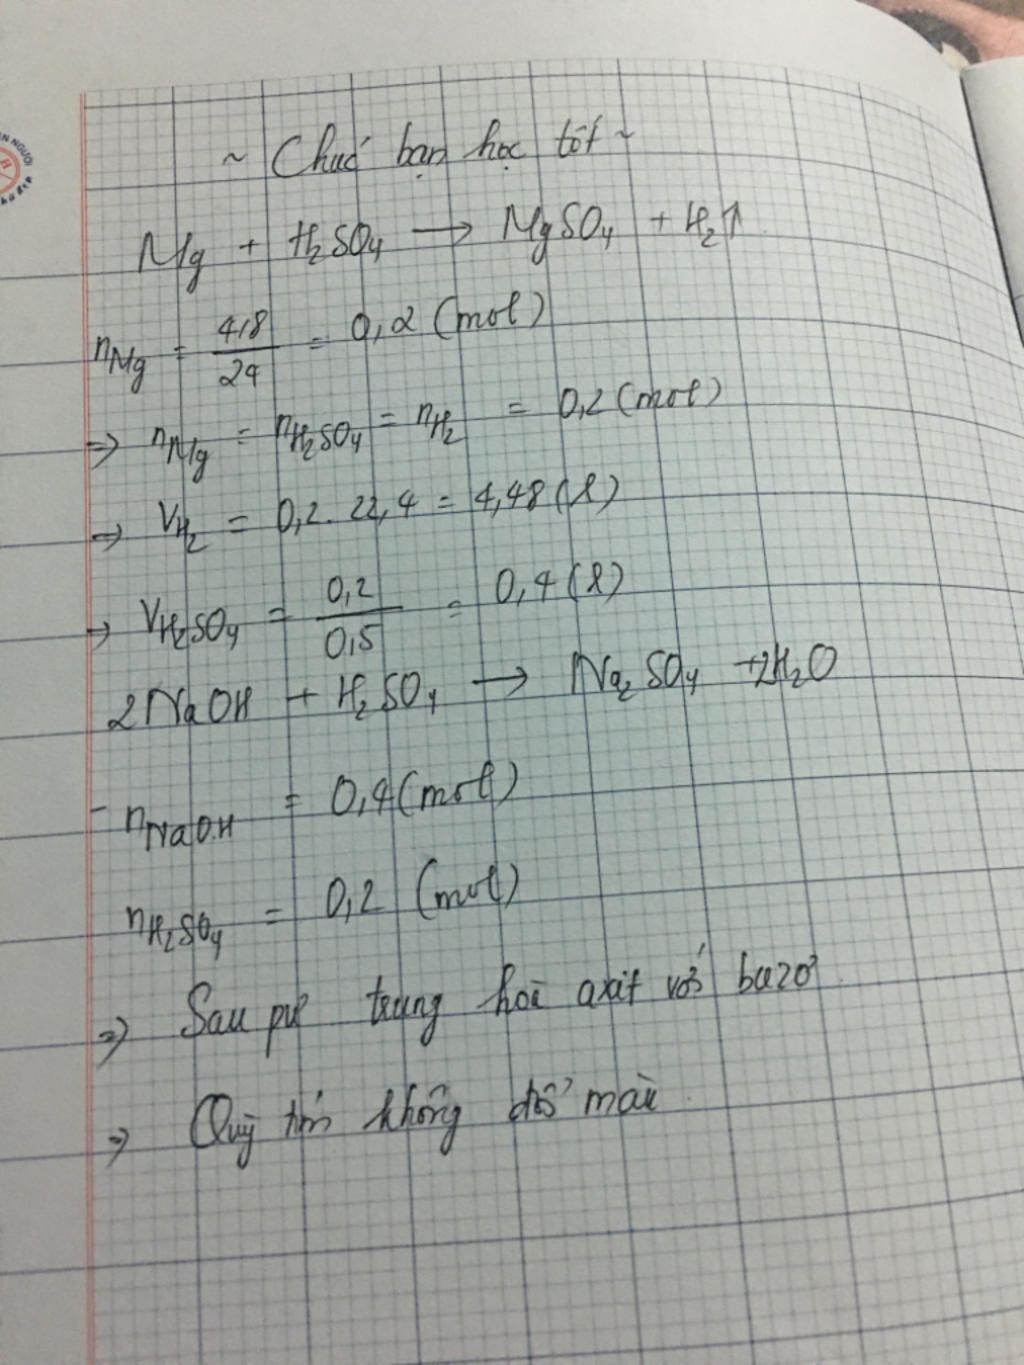 ~ Chúc bạn học tốt ~
Mg + H₂SO₄ → MgSO₄ + H₂↑
nMg = 4,8/24 = 0,2 (mol)
⇒ nMg = nH₂SO₄ = nH₂ = 0,2 (mol)
⇒ VH₂ = 0,2 . 22,4 = 4,48 (l)
⇒ VH₂SO₄ = 0,2/0,5 = 0,4 (l)
2NaOH + H₂SO₄ → Na₂SO₄ + 2H₂O
- nNaOH = 0,4 (mol)
nH₂SO₄ = 0,2 (mol)
⇒ Sau pư trung hoà axit với bazơ.
⇒ Quỳ tím không đổi màu.